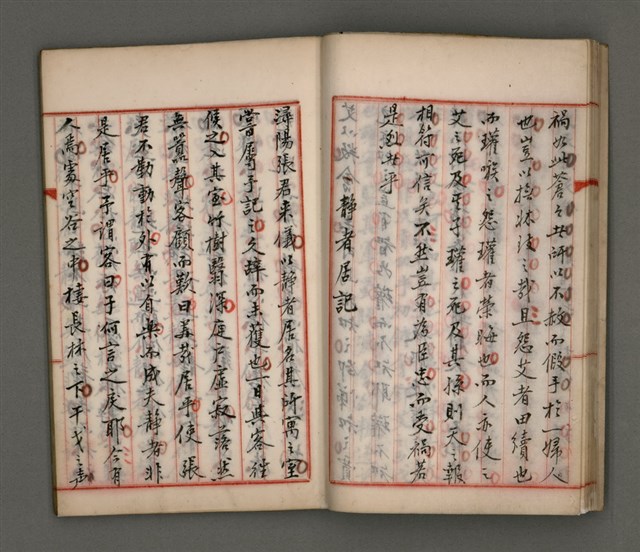 禍如此蒼蒼其所以不赦而假手於一婦人
也豈以掊牀陵之哉且怨艾者由續也
而瓘喉之怨瓘者榮晦也而人亦使之
艾之死及其子瓘之死及其孫則天之報
相符而信矣不然豈有為臣忠而受禍若
是烈者乎
靜者居記
潯陽張君來儀以靜者居名其所寓之室
嘗屬予記之久辭而未獲也一日與客往
候之入其室竹樹翳深庭戶虛寂落然
無囂聲客顧而歎曰美哉居乎使張
君不勤動於外有以自樂而成夫靜者非
是居乎予謂客曰子何言之戾耶今有
人焉處空谷之中棲長林之下干戈之聲